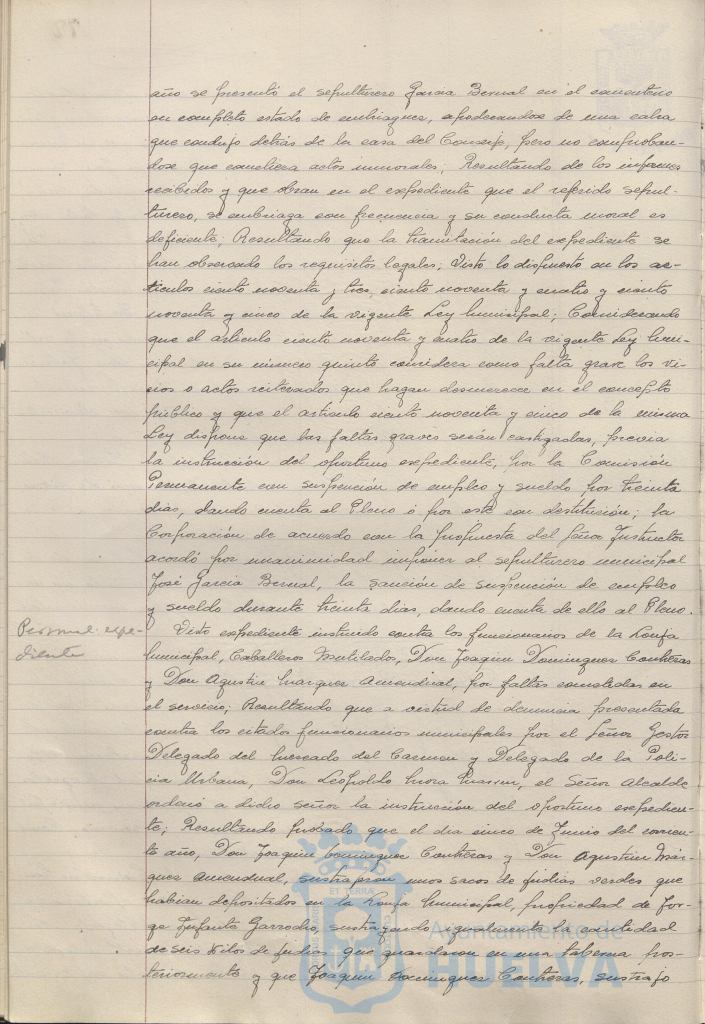 año se presentó el sepulturero García Bernal en el cementerio
en completo estado de embriaguez, apoderandose de una cabra
que condujo detrás de la casa del Conserje, pero no comproban-
dose que cometiera actos inmorales; Resultando de los informes
recibidos y que obran en el expediente que el referido sepul-
turero, se embriaga con frecuencia y su conducta moral es
deficiente; Resultando que la tramitación del expediente se
han observado los requisitos legales; Visto lo dispuesto en los ar-
ticulos ciento noventa y tres, ciento noventa y cuatro y ciento
noventa y cinco de la vigente Ley Municipal; Considerando
que el articulo ciento noventa y cuatro de la vigente Ley Muni-
cipal en su número quinto considera como falta grave los vi-
cios o actos reiterados que hagan desmerecer en el concepto
público y que el articulo ciento noventa y cinco de la misma
Ley dispone que las faltas graves serán castigadas, previa
la instrucción del oportuno expediente, por la Comisión
Permanente con suspención de empleo y sueldo por treinta
dias, dando cuenta al Pleno ó por este con destitución; la
Corporación de acuerdo con la propuesta del Señor Instructor
acordó por unanimidad imponer al sepulturero municipal
José García Bernal, la sanción de suspención de empleo
y sueldo durante treinta dias, dando cuenta de ello al Pleno.
Personal expe-
diente
Visto expediente instruido contra los funcionarios de la Lonja
Municipal, Caballeros Mutilados, Don Joaquin Dominguez Contreras
y Don Agustin Marquez Amendival, por faltas cometidas en
el servicio; Resultando que a virtud de denuncia presentada
contra los citados funcionarios municipales por el Señor Gestor
Delegado del Mercado del Carmen y Delegado de la Poli-
cia Urbana, Don Leopoldo Mora, el Señor Alcalde
ordenó a dicho señor la instrucción del oportuno expedien-
te; Resultando probado que el dia cinco de Junio del corrien-
te año, Don Joaquin Dominguez Contreras y Don Agustin Már-
quez Amendival, sustrajeron unos sacos de judias verdes que
habian depositados en la Lonja Municipal, propiedad de Jor-
ge Infante Garrocho, sustrayendo igualmente la cantidad
de seis kilos de judias que guardaron en una taberna pos-
teriormente y que Joaquin Dominguez Contreras, sustrajo
ET TERRÆ
Ayuntamiento de
HUELVA